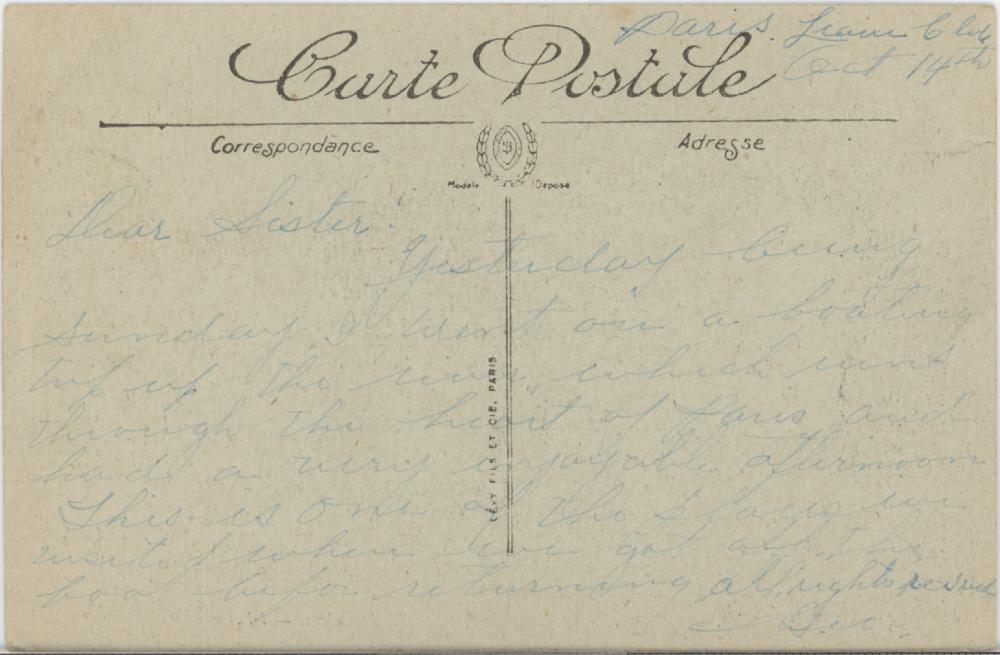 Paris.
Oct 14th
Carte Postale
Correspondance
Adresse
Modèle Déposé
LÉVY FILS ET CIE, PARIS
Dear Sister!
Yesterday being
Sunday, I went on a boating
trip up the river, which runs
through the heart of Paris and
had a very enjoyable afternoon
This is one of the places we
visited when we got off the
boat befor returning, all rights
Geo